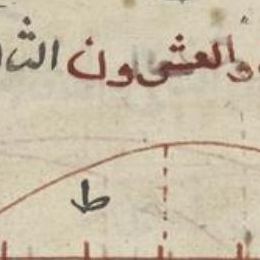 والعشرون الثا
ط